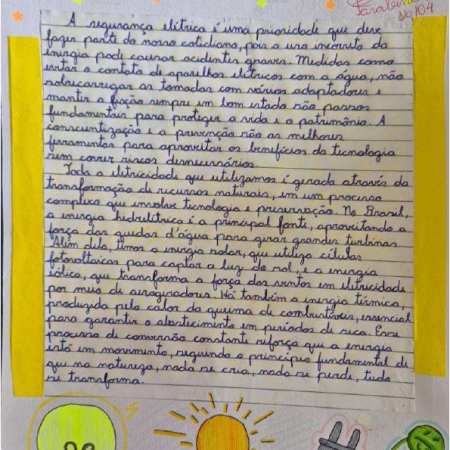 Parabéns
A segurança elétrica é uma prioridade que deve
fazer parte do nosso cotidiano, pois o uso incorreto da
energia pode causar acidentes graves. Medidas como
evitar o contato de aparelhos elétricos com a água, não
sobrecarregar as tomadas com vários adaptadores e
manter a fiação sempre em bom estado são passos
fundamentais para proteger a vida e o patrimônio. A
conscientização e a prevenção são as melhores
ferramentas para aproveitar os benefícios da tecnologia
sem correr riscos desnecessários.
Toda a eletricidade que utilizamos é gerada através da
transformação de recursos naturais, em um processo
complexo que envolve tecnologia e preservação. No Brasil,
a energia hidrelétrica é a principal fonte, aproveitando a
força das quedas d'água para girar grandes turbinas.
Além dela, temos a energia solar, que utiliza células
fotovoltaicas para captar a luz do sol, e a energia
eólica, que transforma a força dos ventos em eletricidade
por meio de aerogeradores. Há também a energia térmica,
produzida pelo calor da queima de combustíveis, essencial
para garantir o abastecimento em períodos de seca. Esse
processo de conversão constante reforça que a energia
está em movimento, seguindo o princípio fundamental de
que na natureza, nada se cria, nada se perde, tudo
se transforma.